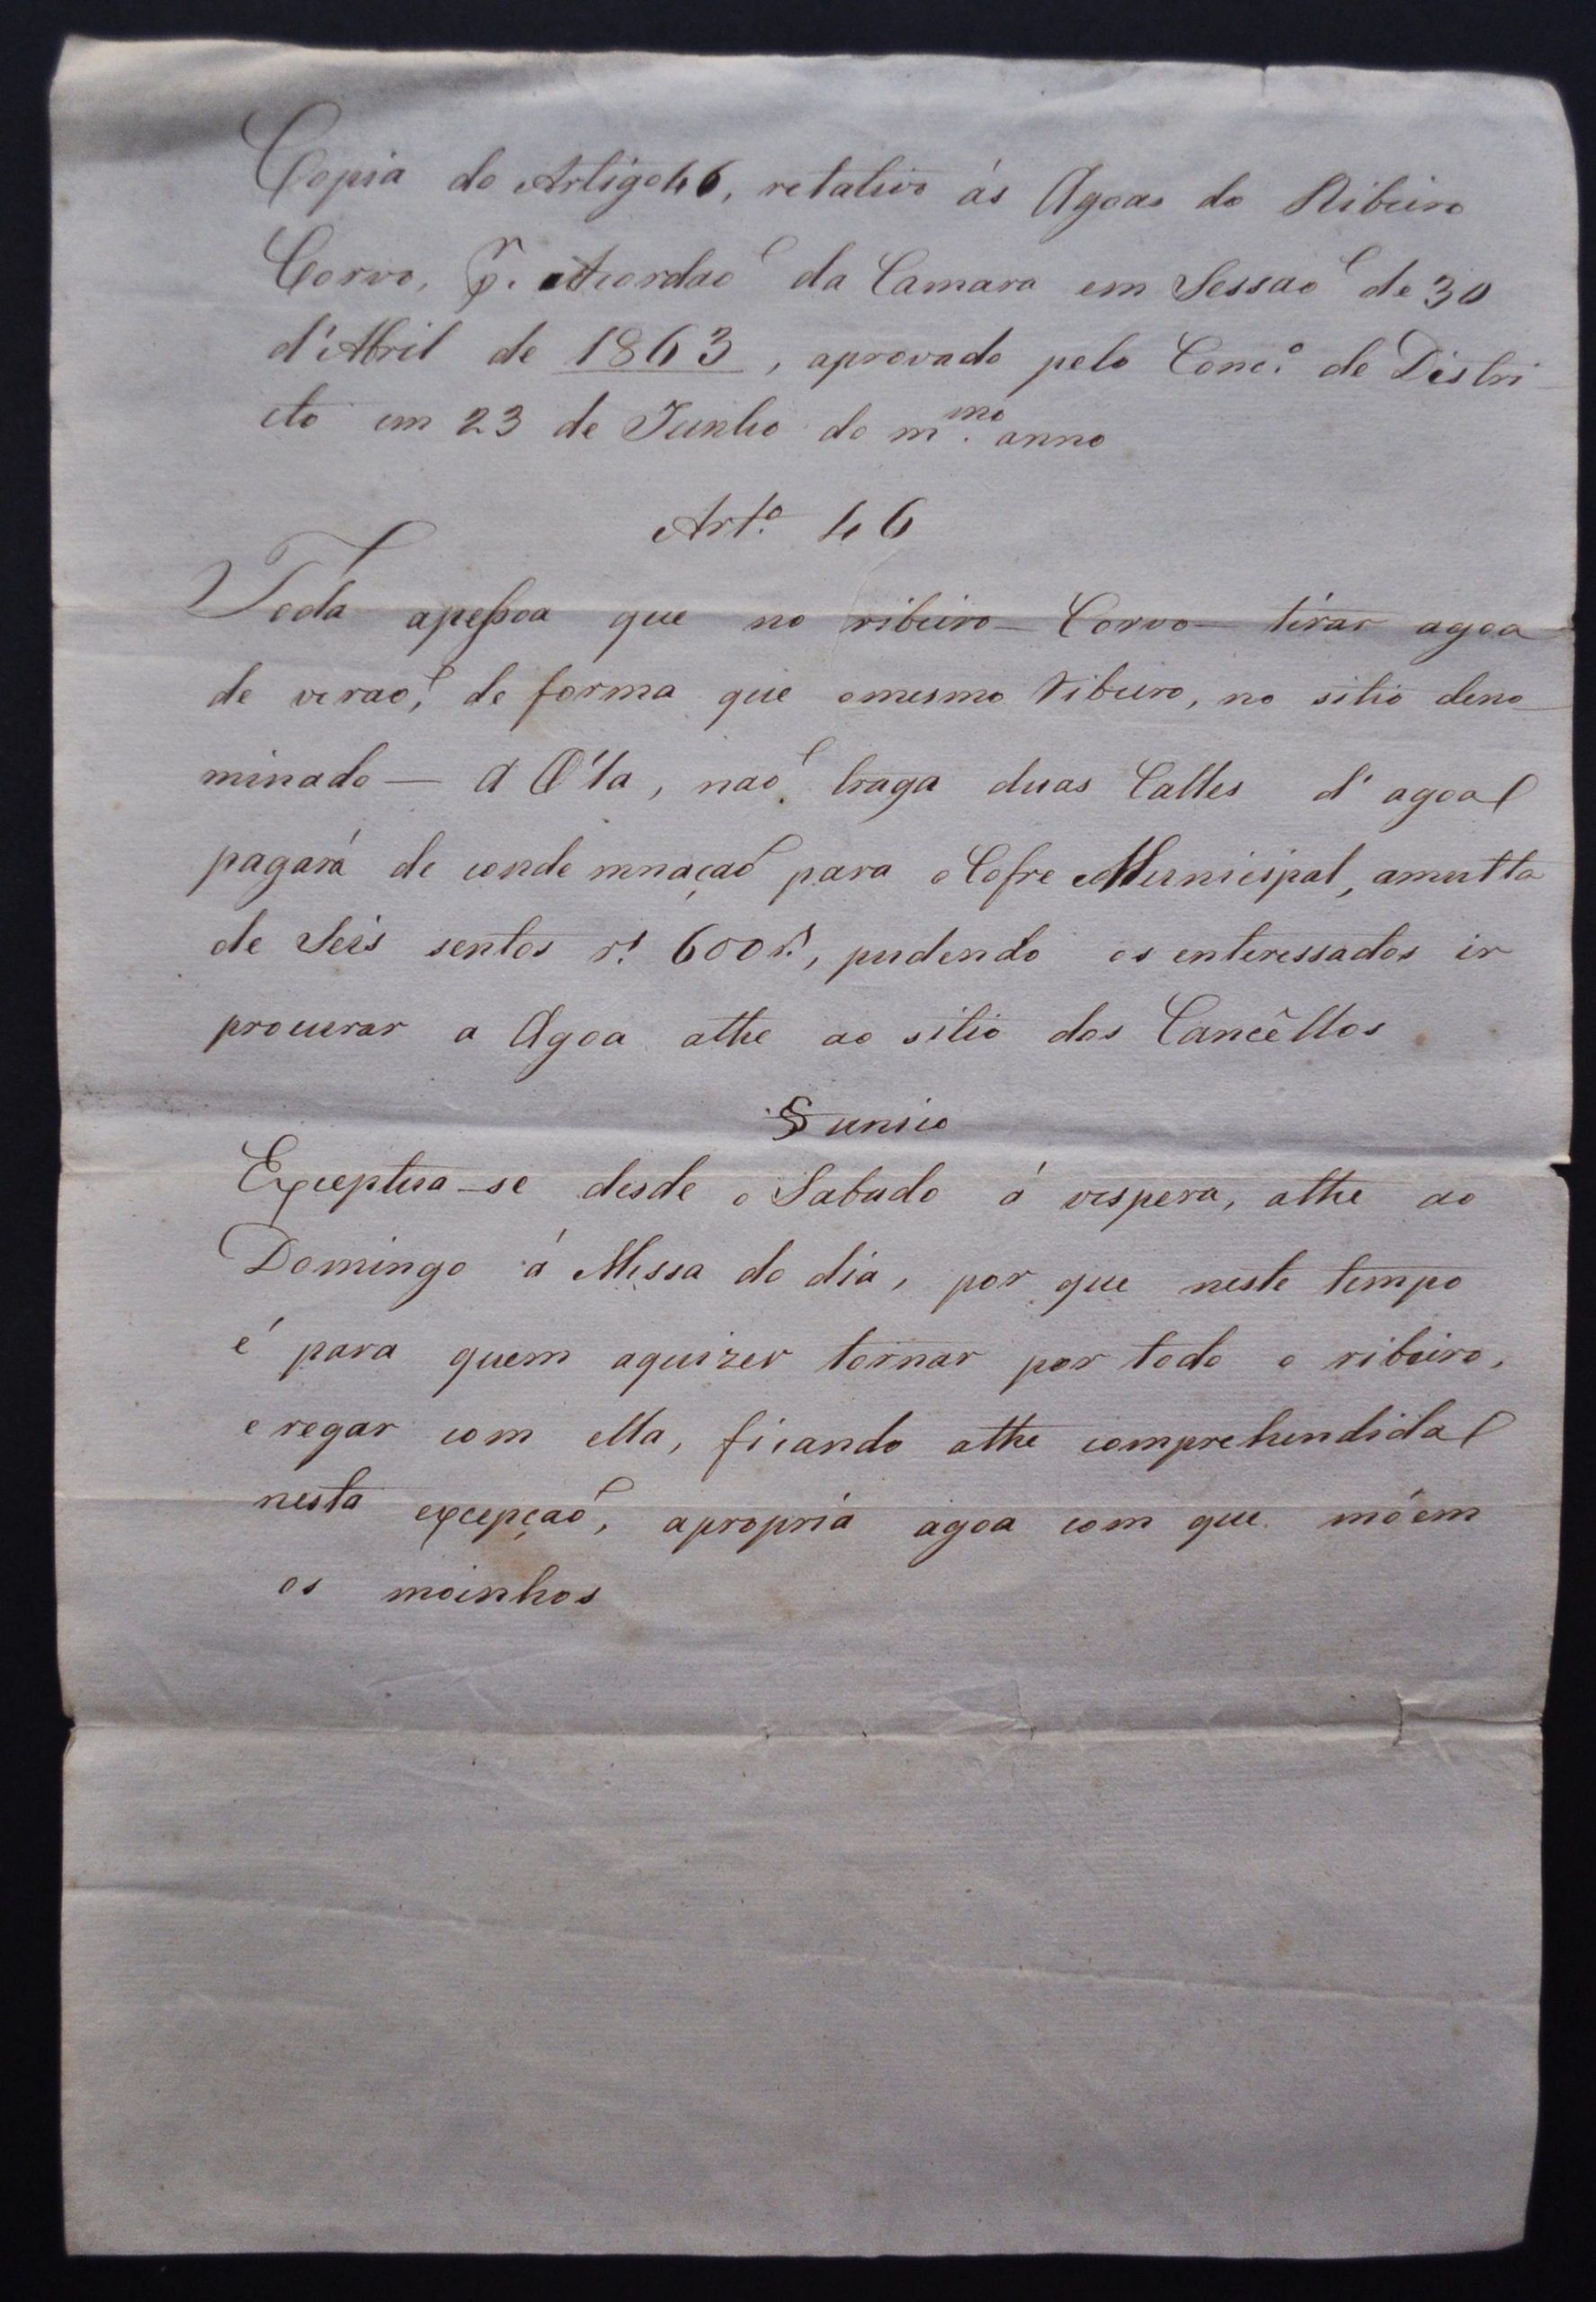 Copia do Artigo 46, relativo ás Agoas do Ribeiro
Corvo, p.r Acordaõ da Camara em Sessaõ de 30
d'Abril de 1863, aprovado pelo Conc.º de Distri
cto em 23 de Junho do m.mo anno
Art.º 46
Toda apessoa que no ribeiro - Corvo - tirar agoa
de veraõ, de forma que omesmo ribeiro, no sitio deno
minado — A O'la, naõ traga duas Calles d'agoa
pagará de conde mnaçaõ para o Cofre Municipal, amulta
de Seis sentos r.s 600 r.s, pudendo os enteressados ir
procurar a Agoa athe ao sitio dos Cancêllos
§ unico
Exceptua-se desde o Sabado á vespera, athe ao
Domingo á Missa do dia, por que neste tempo
é para quem aquizer tornar por todo o ribeiro,
e regar com ella, ficando athe comprehendida
nesta excepçaõ, apropria agoa com que móem
os moinhos